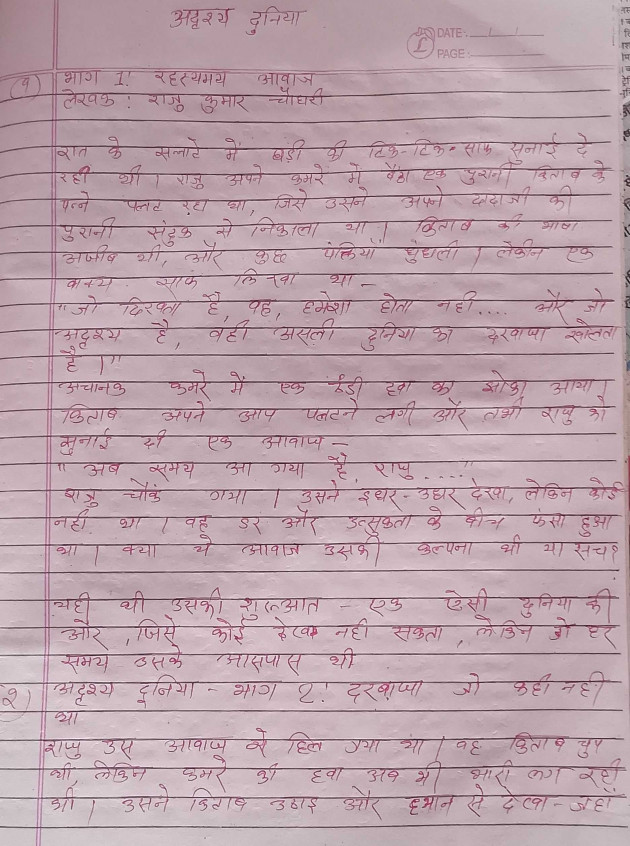 अदृश्य दुनिया
DATE:
PAGE:
(१) भाग I: रहस्यमय आवाज
लेखक : राजु कुमार चौधरी
रात के सन्नाटे में घड़ी की टिक-टिक साफ सुनाई दे
रही थी । राजु अपने कमरें में बैठा एक पुरानी किताब के
पन्ने पलट रहा था, जिसे उसने अपने दादाजी की
पुरानी संदुक से निकाला था । किताब की भाषा
अजीब थी, और कुछ पंक्तियाँ धुंधली । लेकीन एक
वाक्य साफ लिखा था -
"जो दिखता है, वह, हमेशा होता नही.... और जो
अदृश्य है, वही असली दुनिया का दरवाजा खोलता
है ।"
अचानक कमरे में एक ठंडी हवा का झोका आया ।
किताब अपने आप पलटने लगी और तभी राजु को
सुनाई दी एक आवाज -
" अब समय आ गया है, राजु ....."
राजु चौंक गया । उसने इधर-उधर देखा, लेकिन कोई
नही था । वह डर और उत्सुकता के बीच फंसा हुआ
था । क्या ये आवाज उसकी कल्पना थी या सच?
यही थी उसकी शुरुआत - एक ऐसी दुनिया की
और, जिसे कोई देख नही सकता, लेकिन जो हर
समय उसके आसपास थी
२) अदृश्य दुनिया - भाग 2: दरवाजा जो कही नही
था
राजु उस आवाज से हिल गया था । वह किताब चुप
थी, लेकिन कमरे की हवा अब भी भारी लग रही
थी । उसने किताब उठाई और ध्यान से देखा - जहाँ